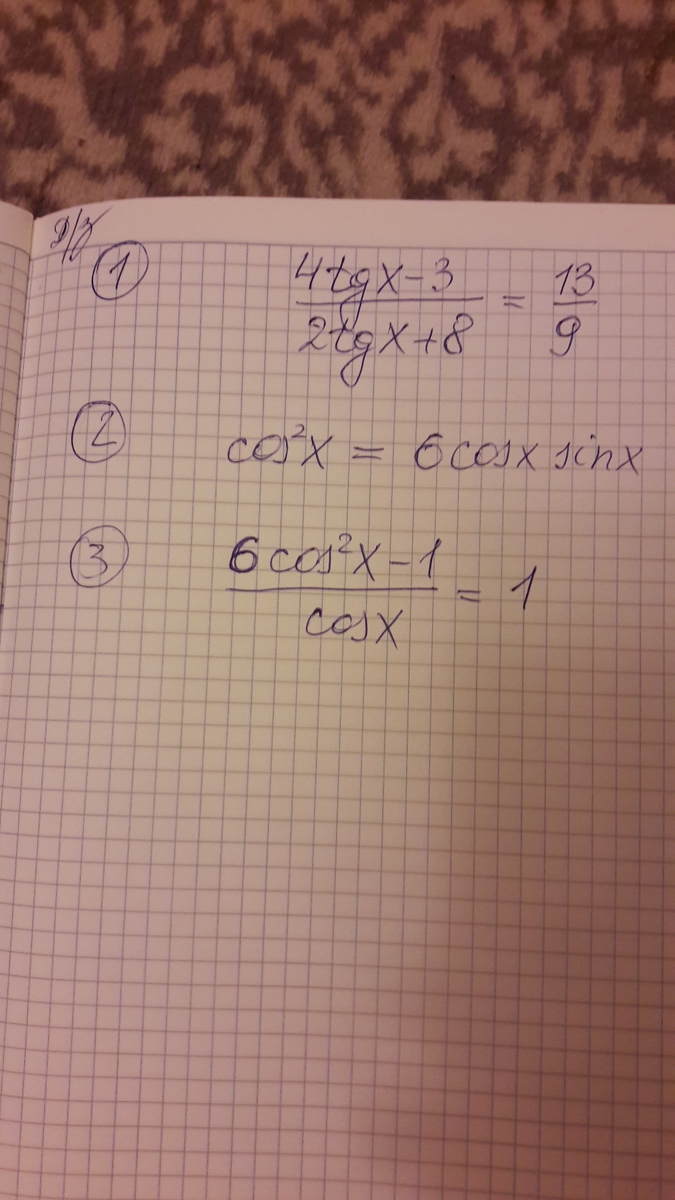 Д/з
① 4tgx-3 / 2tgx+8 = 13/9
② cos²x = 6cosx sinx
③ 6cos²x-1 / cosx = 1